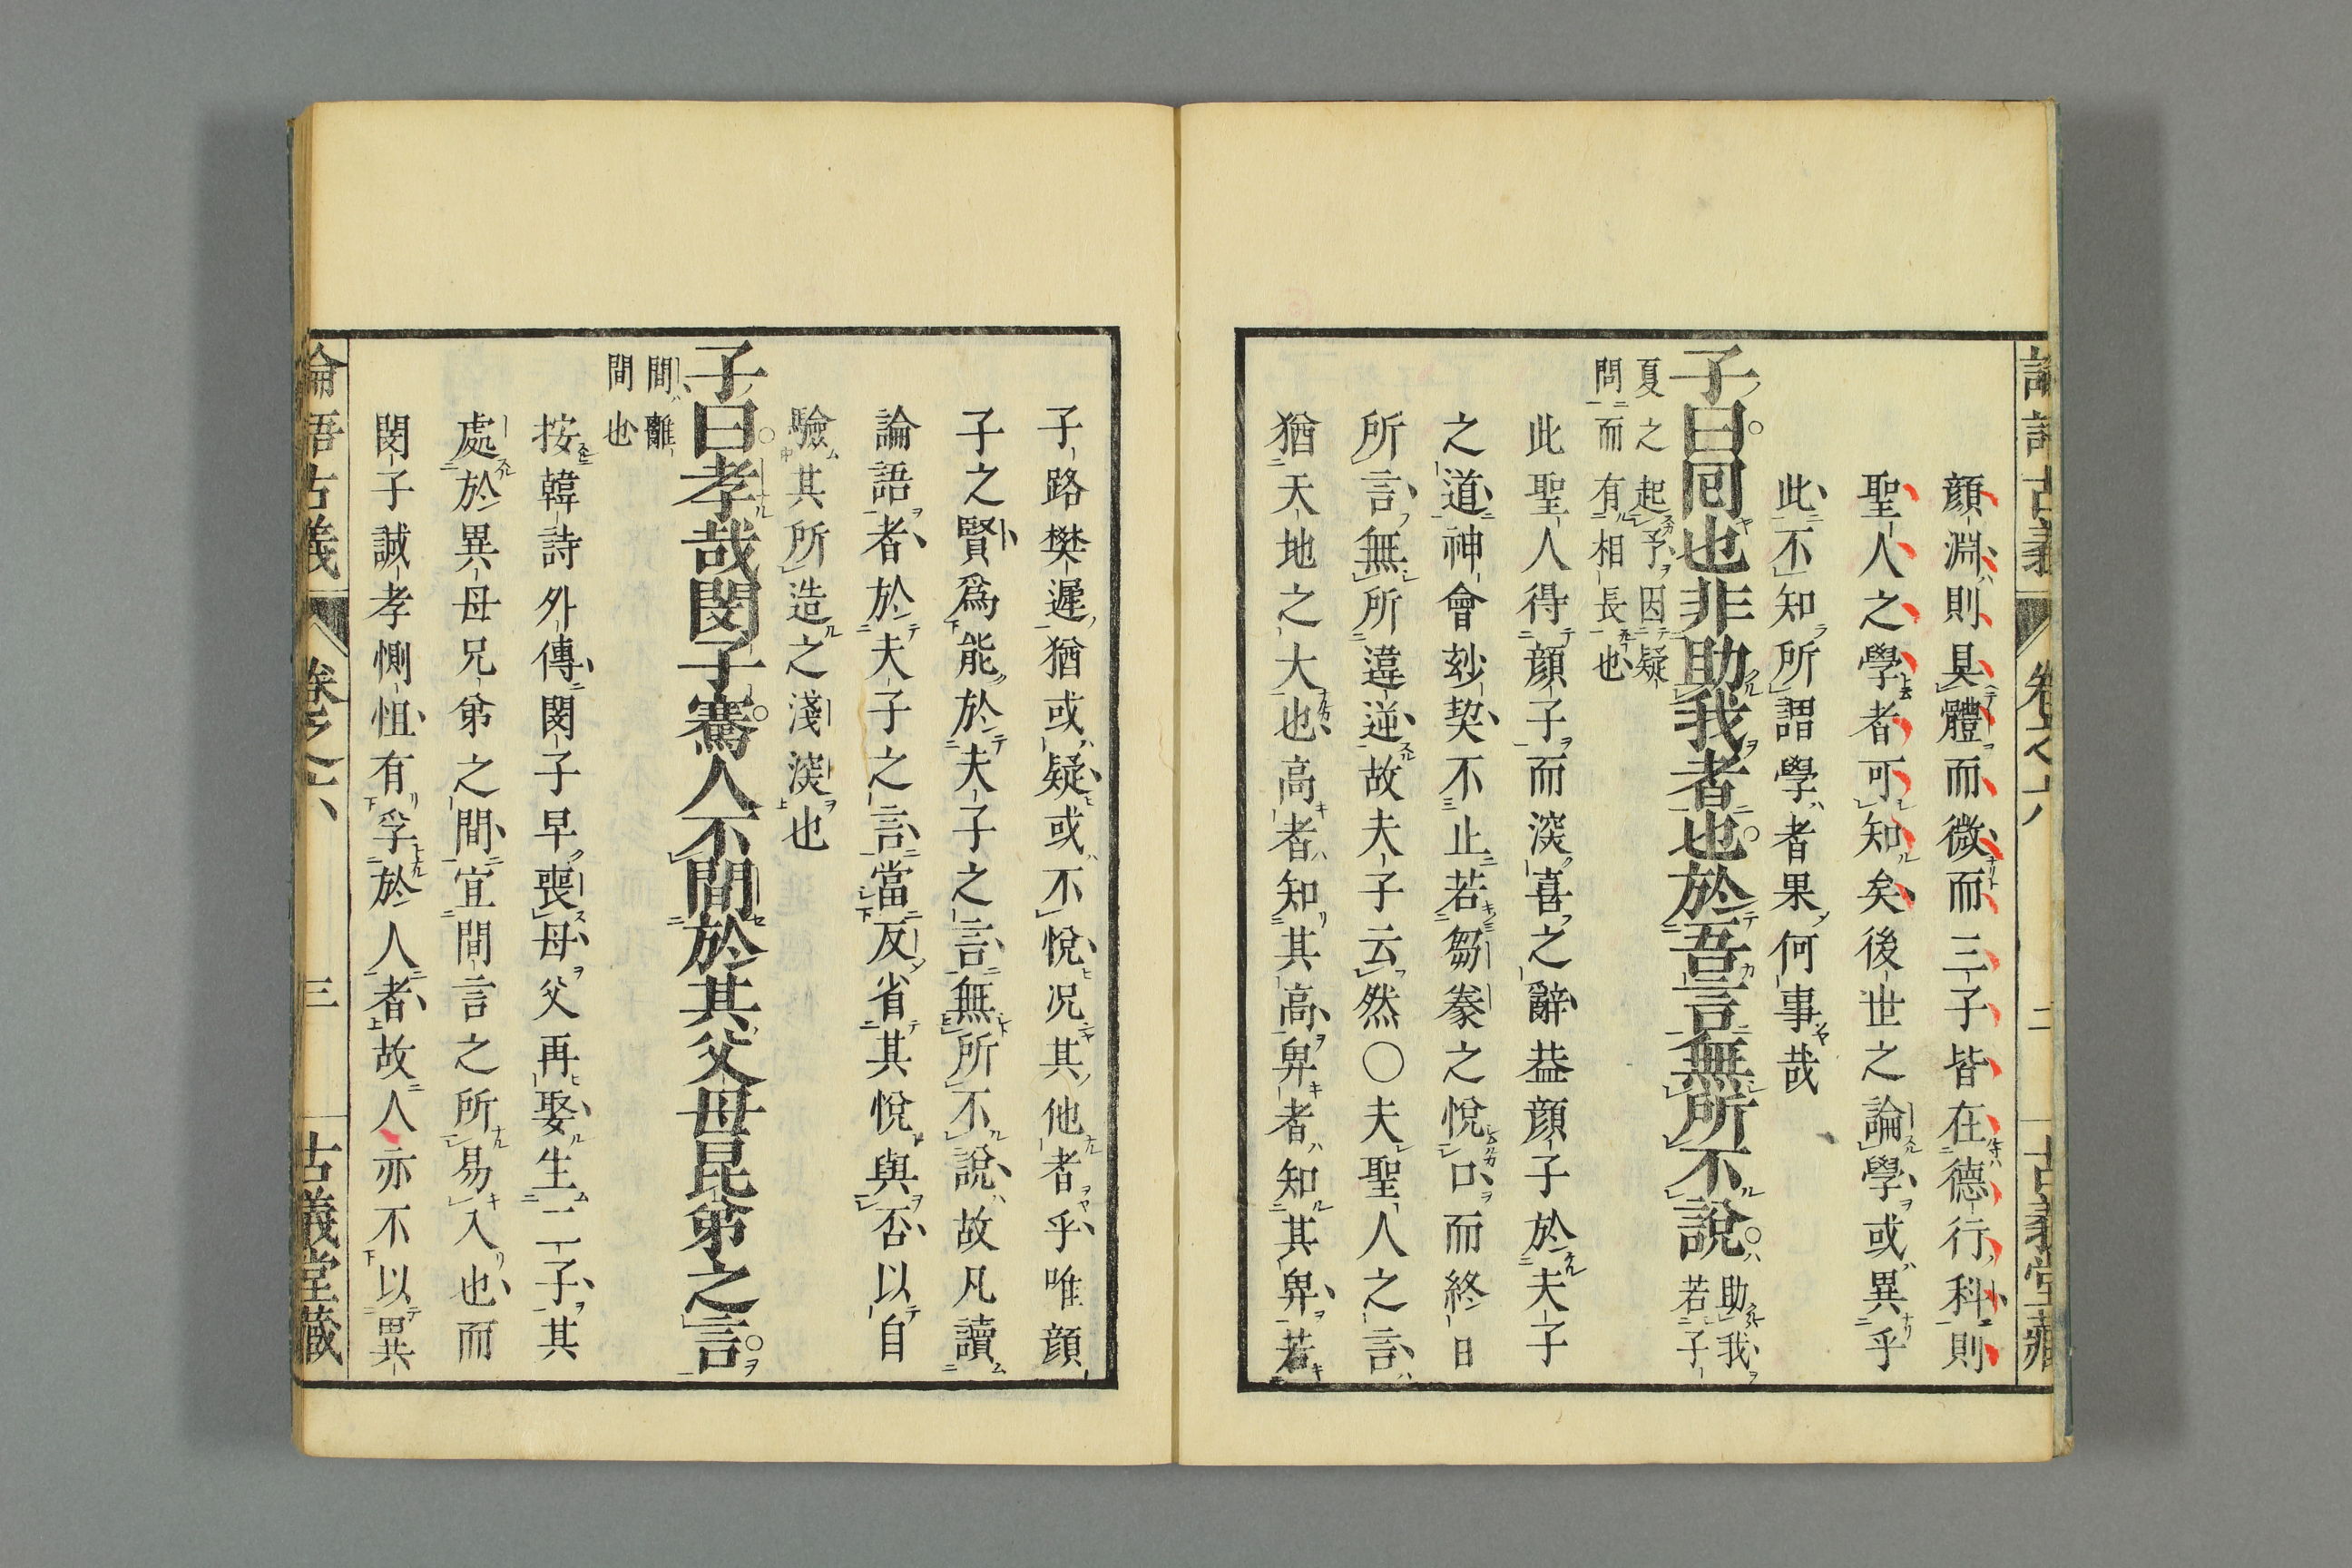 顏淵則具體而微而三子皆在德行科則
聖人之學者可知矣後世之論學或異乎
此不知所謂學者果何事哉
子曰回也非助我者也於吾言無所不說助我若子
夏之起予因疑
問而有相長也
此聖人得顏子而深喜之辭葢顏子於夫子
之道神會玅契不止若芻豢之悅口而終日
所言無所違逆故夫子云然〇夫聖人之言
猶天地之大也高者知其高卑者知其卑若
子路樊遲猶或疑或不悅况其他者乎唯顏
子之賢爲能於夫子之言無所不說故凡讀
論語者於夫子之言當反省其悅與否以自
驗其所造之淺深也
子曰孝哉閔子騫人不間於其父母昆弟之言
間離
間也
按韓詩外傳閔子早喪母父再娶生二子其
處於異母兄弟之間宜間言之所易入也而
閔子誠孝惻怛有孚於人者故人亦不以異
論語古義 卷之六 三 古義堂藏